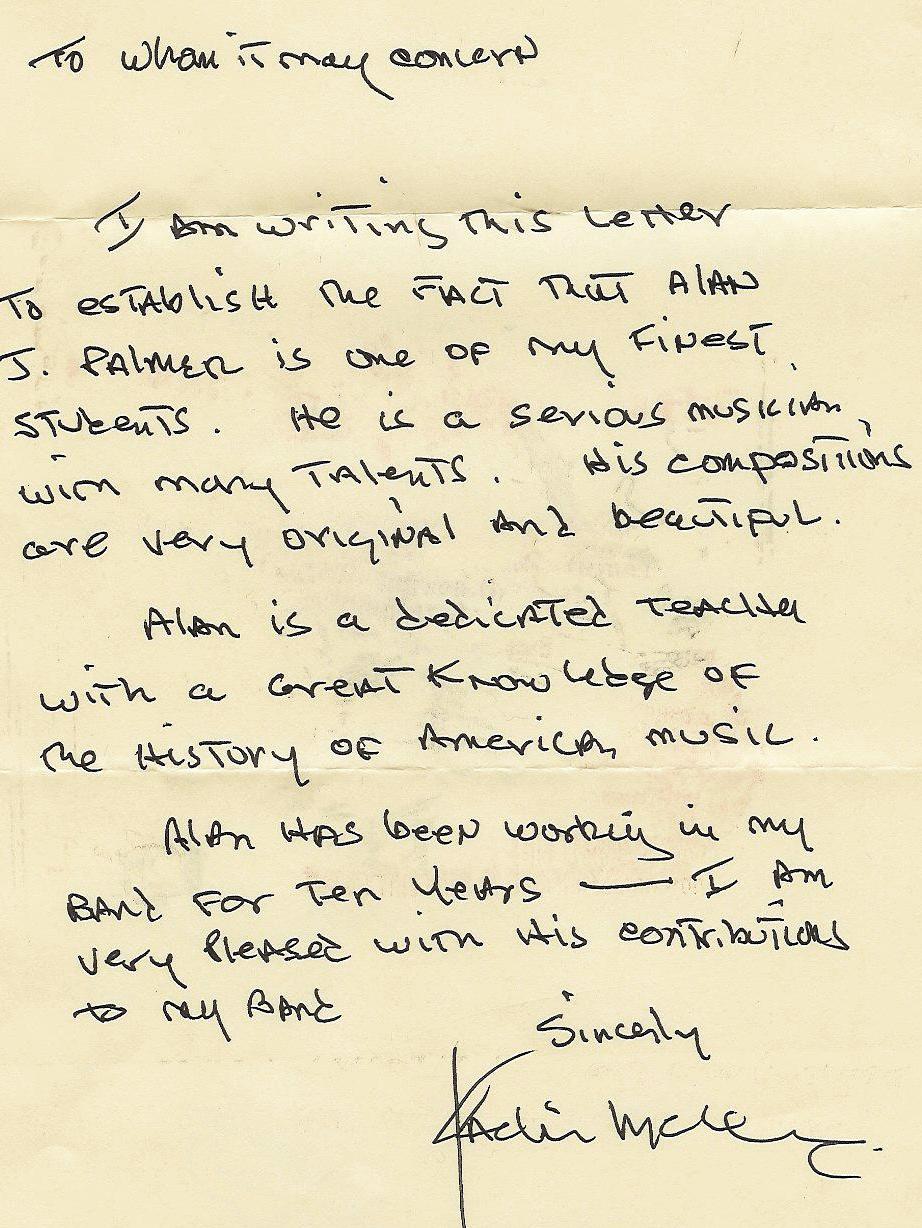 To whom it may concern
I Am writing this Letter
To establish the fact that Alan
J. Palmer is one of my finest
students. He is a serious musician,
with many Talents. His compositions
are very original and beautiful.
Alan is a dedicated Teacher
with a Great Knowledge of
the History of American music.
Alan Has been working in my
Band for Ten Years — I Am
very Pleased with His contributions
to my Band
Sincerly